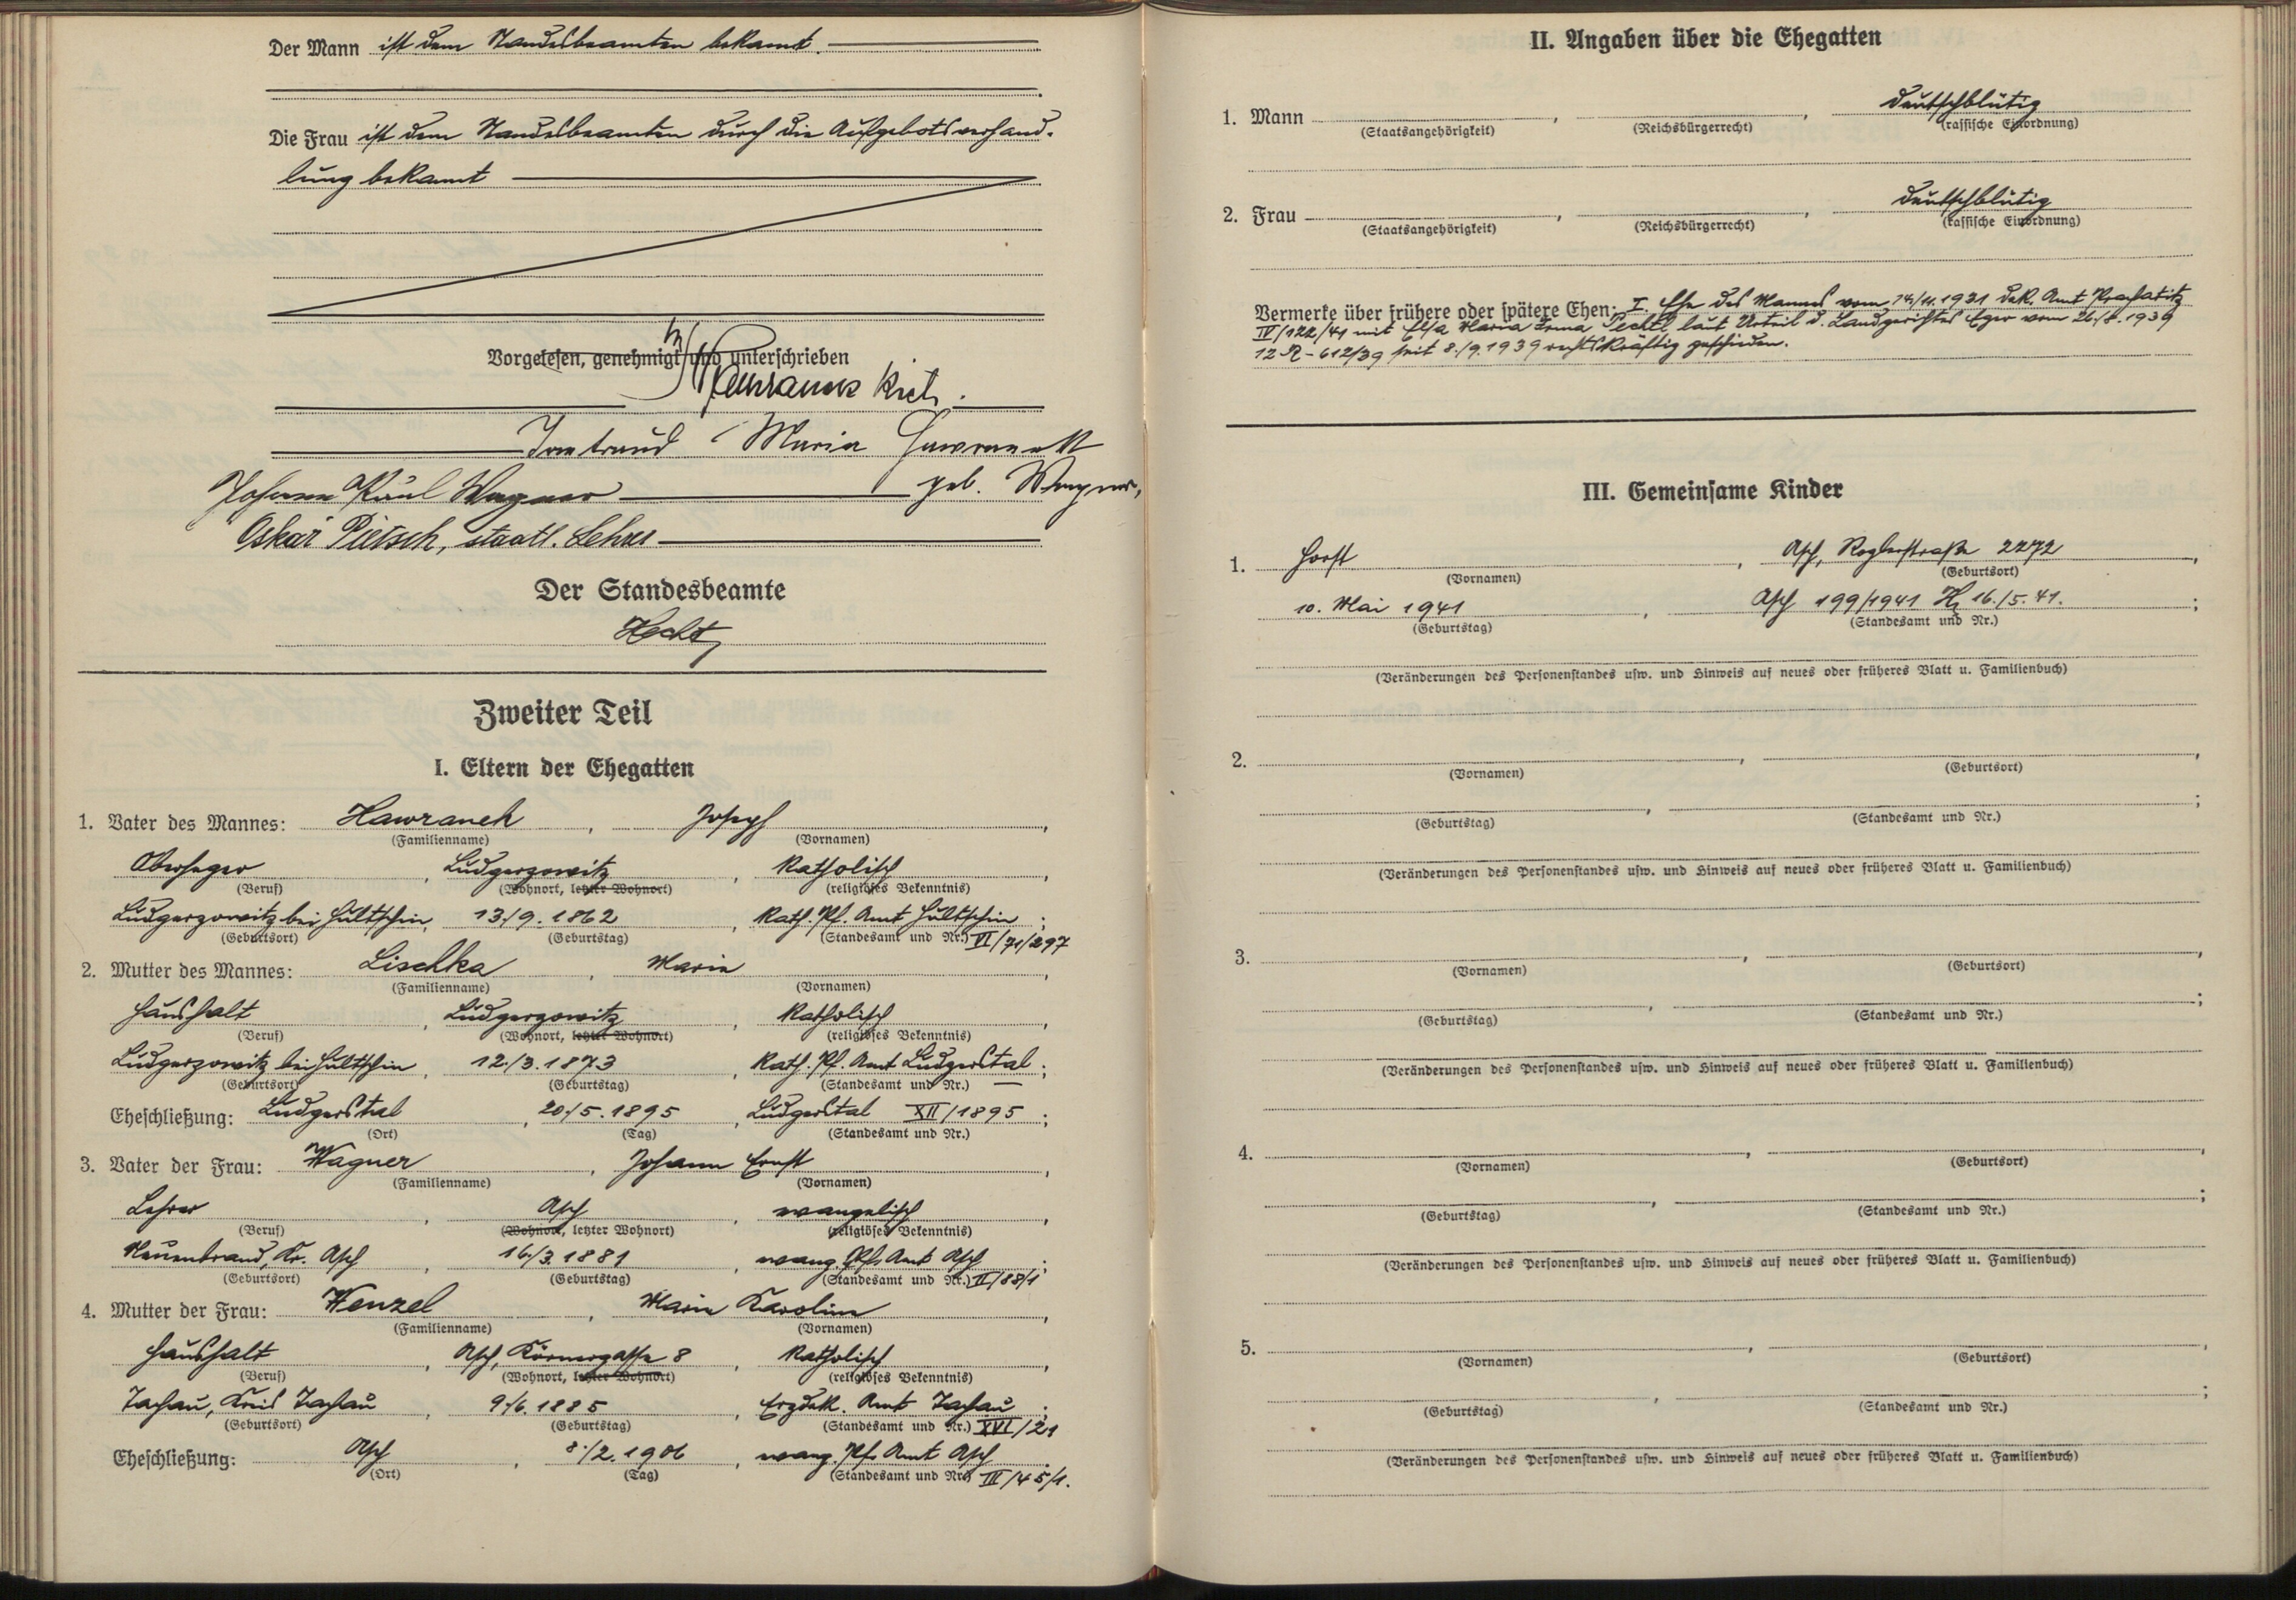 Der Mann ist dem Standesbeamten bekannt.
Die Frau ist dem Standesbeamten durch die Aufgebotsverhand-
lung bekannt
Vorgelesen, genehmigt und unterschrieben
Hawranek Rich.
Irmtraud Maria Hawranek
Johann Paul Wagner geb. Wagner,
Oskar Pietsch, staatl. Lehrer
Der Standesbeamte
Hecht
Zweiter Teil
I. Eltern der Ehegatten
1. Vater des Mannes: Hawranek, Josef,
(Familienname) (Vornamen)
Oberheger, Ludgerzowitz, Katholisch,
(Beruf) (Wohnort, letzter Wohnort) (religiöses Bekenntnis)
Ludgerzowitz bei Hultschin, 13./9. 1862, Kath. Pf. Amt Hultschin;
(Geburtsort) (Geburtstag) (Standesamt und Nr.) VI/71/297
2. Mutter des Mannes: Lischka, Maria,
(Familienname) (Vornamen)
Haushalt, Ludgerzowitz, Katholisch,
(Beruf) (Wohnort, letzter Wohnort) (religiöses Bekenntnis)
Ludgerzowitz bei Hultschin, 12./3. 1873, Kath. Pf. Amt Ludgerstal;
(Geburtsort) (Geburtstag) (Standesamt und Nr.) —
Eheschließung: Ludgerstal, 20./5. 1895, Ludgerstal XII/1895;
(Ort) (Tag) (Standesamt und Nr.)
3. Vater der Frau: Wagner, Johann Ernst,
(Familienname) (Vornamen)
Lehrer, Asch, evangelisch,
(Beruf) (Wohnort, letzter Wohnort) (religiöses Bekenntnis)
Neuenbrand, Kr. Asch, 16./3. 1881, evang. Pf. Amt Asch;
(Geburtsort) (Geburtstag) (Standesamt und Nr.) II/88/1
4. Mutter der Frau: Wenzel, Maria Karolina,
(Familienname) (Vornamen)
Haushalt, Asch, Körnergasse 8, Katholisch,
(Beruf) (Wohnort, letzter Wohnort) (religiöses Bekenntnis)
Tachau, Kreis Tachau, 9./6. 1885, Erzdek. Amt Tachau;
(Geburtsort) (Geburtstag) (Standesamt und Nr.) XVI/21
Eheschließung: Asch, 8./2. 1906, evang. Pf. Amt Asch;
(Ort) (Tag) (Standesamt und Nr.) III/45/1.
II. Angaben über die Ehegatten
1. Mann, , deutschblütig
(Staatsangehörigkeit) (Reichsbürgerrecht) (rassische Einordnung)
2. Frau, , deutschblütig
(Staatsangehörigkeit) (Reichsbürgerrecht) (rassische Einordnung)
Vermerke über frühere oder spätere Ehen: I. Ehe des Mannes vom 14./11. 1931 Dek. Amt Prachatitz
IV/122/41 mit Elsa Maria Irma Pechtl laut Urteil d. Landgerichtes Eger vom 26./8. 1939
12 R - 612/39 seit 8./9. 1939 rechtskräftig geschieden.
III. Gemeinsame Kinder
1. Horst, Asch, Roglerstraße 2272,
(Vornamen) (Geburtsort)
10. Mai 1941, Asch 199/1941 16./5. 41.;
(Geburtstag) (Standesamt und Nr.)
(Veränderungen des Personenstandes usw. und Hinweis auf neues oder früheres Blatt u. Familienbuch)
2. , ,
(Vornamen) (Geburtsort)
, ;
(Geburtstag) (Standesamt und Nr.)
(Veränderungen des Personenstandes usw. und Hinweis auf neues oder früheres Blatt u. Familienbuch)
3. , ,
(Vornamen) (Geburtsort)
, ;
(Geburtstag) (Standesamt und Nr.)
(Veränderungen des Personenstandes usw. und Hinweis auf neues oder früheres Blatt u. Familienbuch)
4. , ,
(Vornamen) (Geburtsort)
, ;
(Geburtstag) (Standesamt und Nr.)
(Veränderungen des Personenstandes usw. und Hinweis auf neues oder früheres Blatt u. Familienbuch)
5. , ,
(Vornamen) (Geburtsort)
, ;
(Geburtstag) (Standesamt und Nr.)
(Veränderungen des Personenstandes usw. und Hinweis auf neues oder früheres Blatt u. Familienbuch)